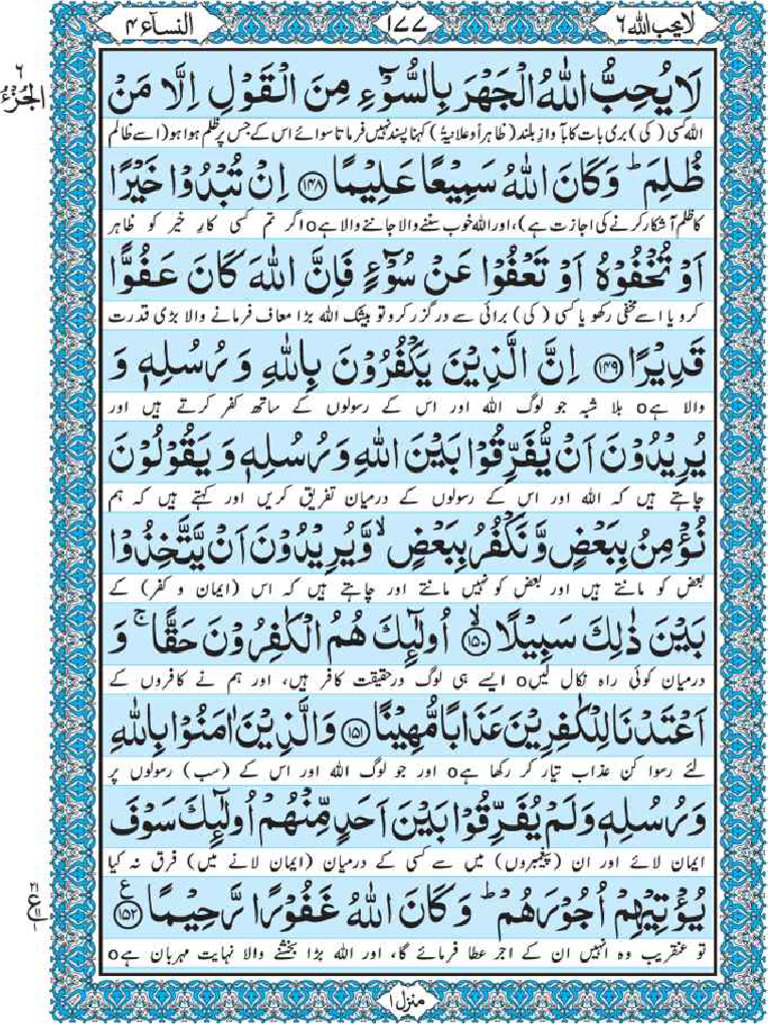 لا یحب اللہ ٦
١٧٧
النسآء ٤
٦
الجزء
لَا يُحِبُّ اللّٰهُ الْجَهْرَ بِالسُّوْٓءِ مِنَ الْقَوْلِ اِلَّا مَنْ
اللہ کسی (کی) بری بات کا بآوازِ بلند (ظاہراً و علانیۃً) کہنا پسند نہیں فرماتا سوائے اس کے جس پر ظلم ہوا ہو (اسے ظالم
ظُلِمَ ؕ وَكَانَ اللّٰهُ سَمِيْعًا عَلِيْمًا ﴿١٤٨﴾ اِنْ تُبْدُوْا خَيْرًا
کا ظلم آشکار کرنے کی اجازت ہے)، اور اللہ خوب سننے والا جاننے والا ہے o اگر تم کسی کارِ خیر کو ظاہر
اَوْ تُخْفُوْهُ اَوْ تَعْفُوْا عَنْ سُوْٓءٍ فَاِنَّ اللّٰهَ كَانَ عَفُوًّا
کرو یا اسے مخفی رکھو یا کسی (کی) برائی سے در گزر کرو تو بیشک اللہ بڑا معاف فرمانے والا بڑی قدرت
قَدِيْرًا ﴿١٤٩﴾ اِنَّ الَّذِيْنَ يَكْفُرُوْنَ بِاللّٰهِ وَ رُسُلِهٖ وَ
والا ہے o بلا شبہ جو لوگ اللہ اور اس کے رسولوں کے ساتھ کفر کرتے ہیں اور
يُرِيْدُوْنَ اَنْ يُّفَرِّقُوْا بَيْنَ اللّٰهِ وَ رُسُلِهٖ وَ يَقُوْلُوْنَ
چاہتے ہیں کہ اللہ اور اس کے رسولوں کے درمیان تفریق کریں اور کہتے ہیں کہ ہم
نُؤْمِنُ بِبَعْضٍ وَّ نَكْفُرُ بِبَعْضٍ ۙ وَّ يُرِيْدُوْنَ اَنْ يَّتَّخِذُوْا
بعض کو مانتے ہیں اور بعض کو نہیں مانتے اور چاہتے ہیں کہ اس (ایمان و کفر) کے
بَيْنَ ذٰلِكَ سَبِيْلًا ۙ﴿١٥٠﴾ اُولٰٓئِكَ هُمُ الْكٰفِرُوْنَ حَقًّا ۚ وَ
درمیان کوئی راہ نکال لیں o ایسے ہی لوگ درحقیقت کافر ہیں، اور ہم نے کافروں کے
اَعْتَدْنَا لِلْكٰفِرِيْنَ عَذَابًا مُّهِيْنًا ﴿١٥١﴾ وَالَّذِيْنَ اٰمَنُوْا بِاللّٰهِ
لئے رسوا کن عذاب تیار کر رکھا ہے o اور جو لوگ اللہ اور اس کے (سب) رسولوں پر
وَ رُسُلِهٖ وَ لَمْ يُفَرِّقُوْا بَيْنَ اَحَدٍ مِّنْهُمْ اُولٰٓئِكَ سَوْفَ
ایمان لائے اور ان (پیغمبروں) میں سے کسی کے درمیان (ایمان لانے میں) فرق نہ کیا
يُؤْتِيْهِمْ اُجُوْرَهُمْ ؕ وَ كَانَ اللّٰهُ غَفُوْرًا رَّحِيْمًا ﴿١٥٢﴾ ع
تو عنقریب وہ انہیں ان کے اجر عطا فرمائے گا، اور اللہ بڑا بخشنے والا نہایت مہربان ہے o
٢١
ع ١١
١
منزل ١